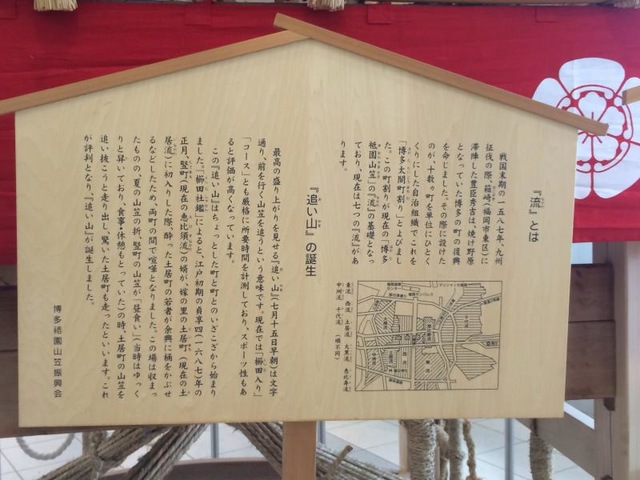 『流』とは
戦国末期の一五八七年、九州
征伐の際、箱崎(福岡市東区)に
滞陣した豊臣秀吉は、焼け野原
となっていた博多の町の復興
を命じました。その際に設けた
のが、十数ヶ町を単位にひとく
くりにした自治組織でこれを
「博多太閤町割り」とよびまし
た。この町割りが現在の「博多
祇園山笠」の『流』の基礎となっ
ており、現在は七つの『流』があ
ります。
東流 西流 土居流 大黒流 恵比寿流
中洲流 千代流 (順不同)
『追い山』の誕生
最高の盛り上がりを見せる「追い山」(七月十五日早朝)は文字
通り、前を行く山笠を追うという意味です。現在では「櫛田入り」
「コース」とも厳格に所要時間を計測しており、スポーツ性もあ
ると評価が高くなっています。
この『追い山』はちょっとした町と町とのいざこざから始まり
ました。「櫛田社鑑」によると、江戸初期の貞享四(一六八七)年の
正月、竪町(現在の恵比須流)の婿が、嫁の里の土居町(現在の土
居流)に初入りした際、酔った土居町の若者が余興に桶をかぶせ
るなどしたため、両町の間で喧嘩となりました。この場は収まっ
たものの、夏の山笠の折、竪町の山笠が「昼食い」(当時はゆっく
りと舁いており、食事・休憩もとっていた)の時、土居町の山笠を
追い抜こうと走り出し、驚いた土居町も走ったといいます。これ
が評判となり、『追い山』が誕生しました。
博多祇園山笠振興会